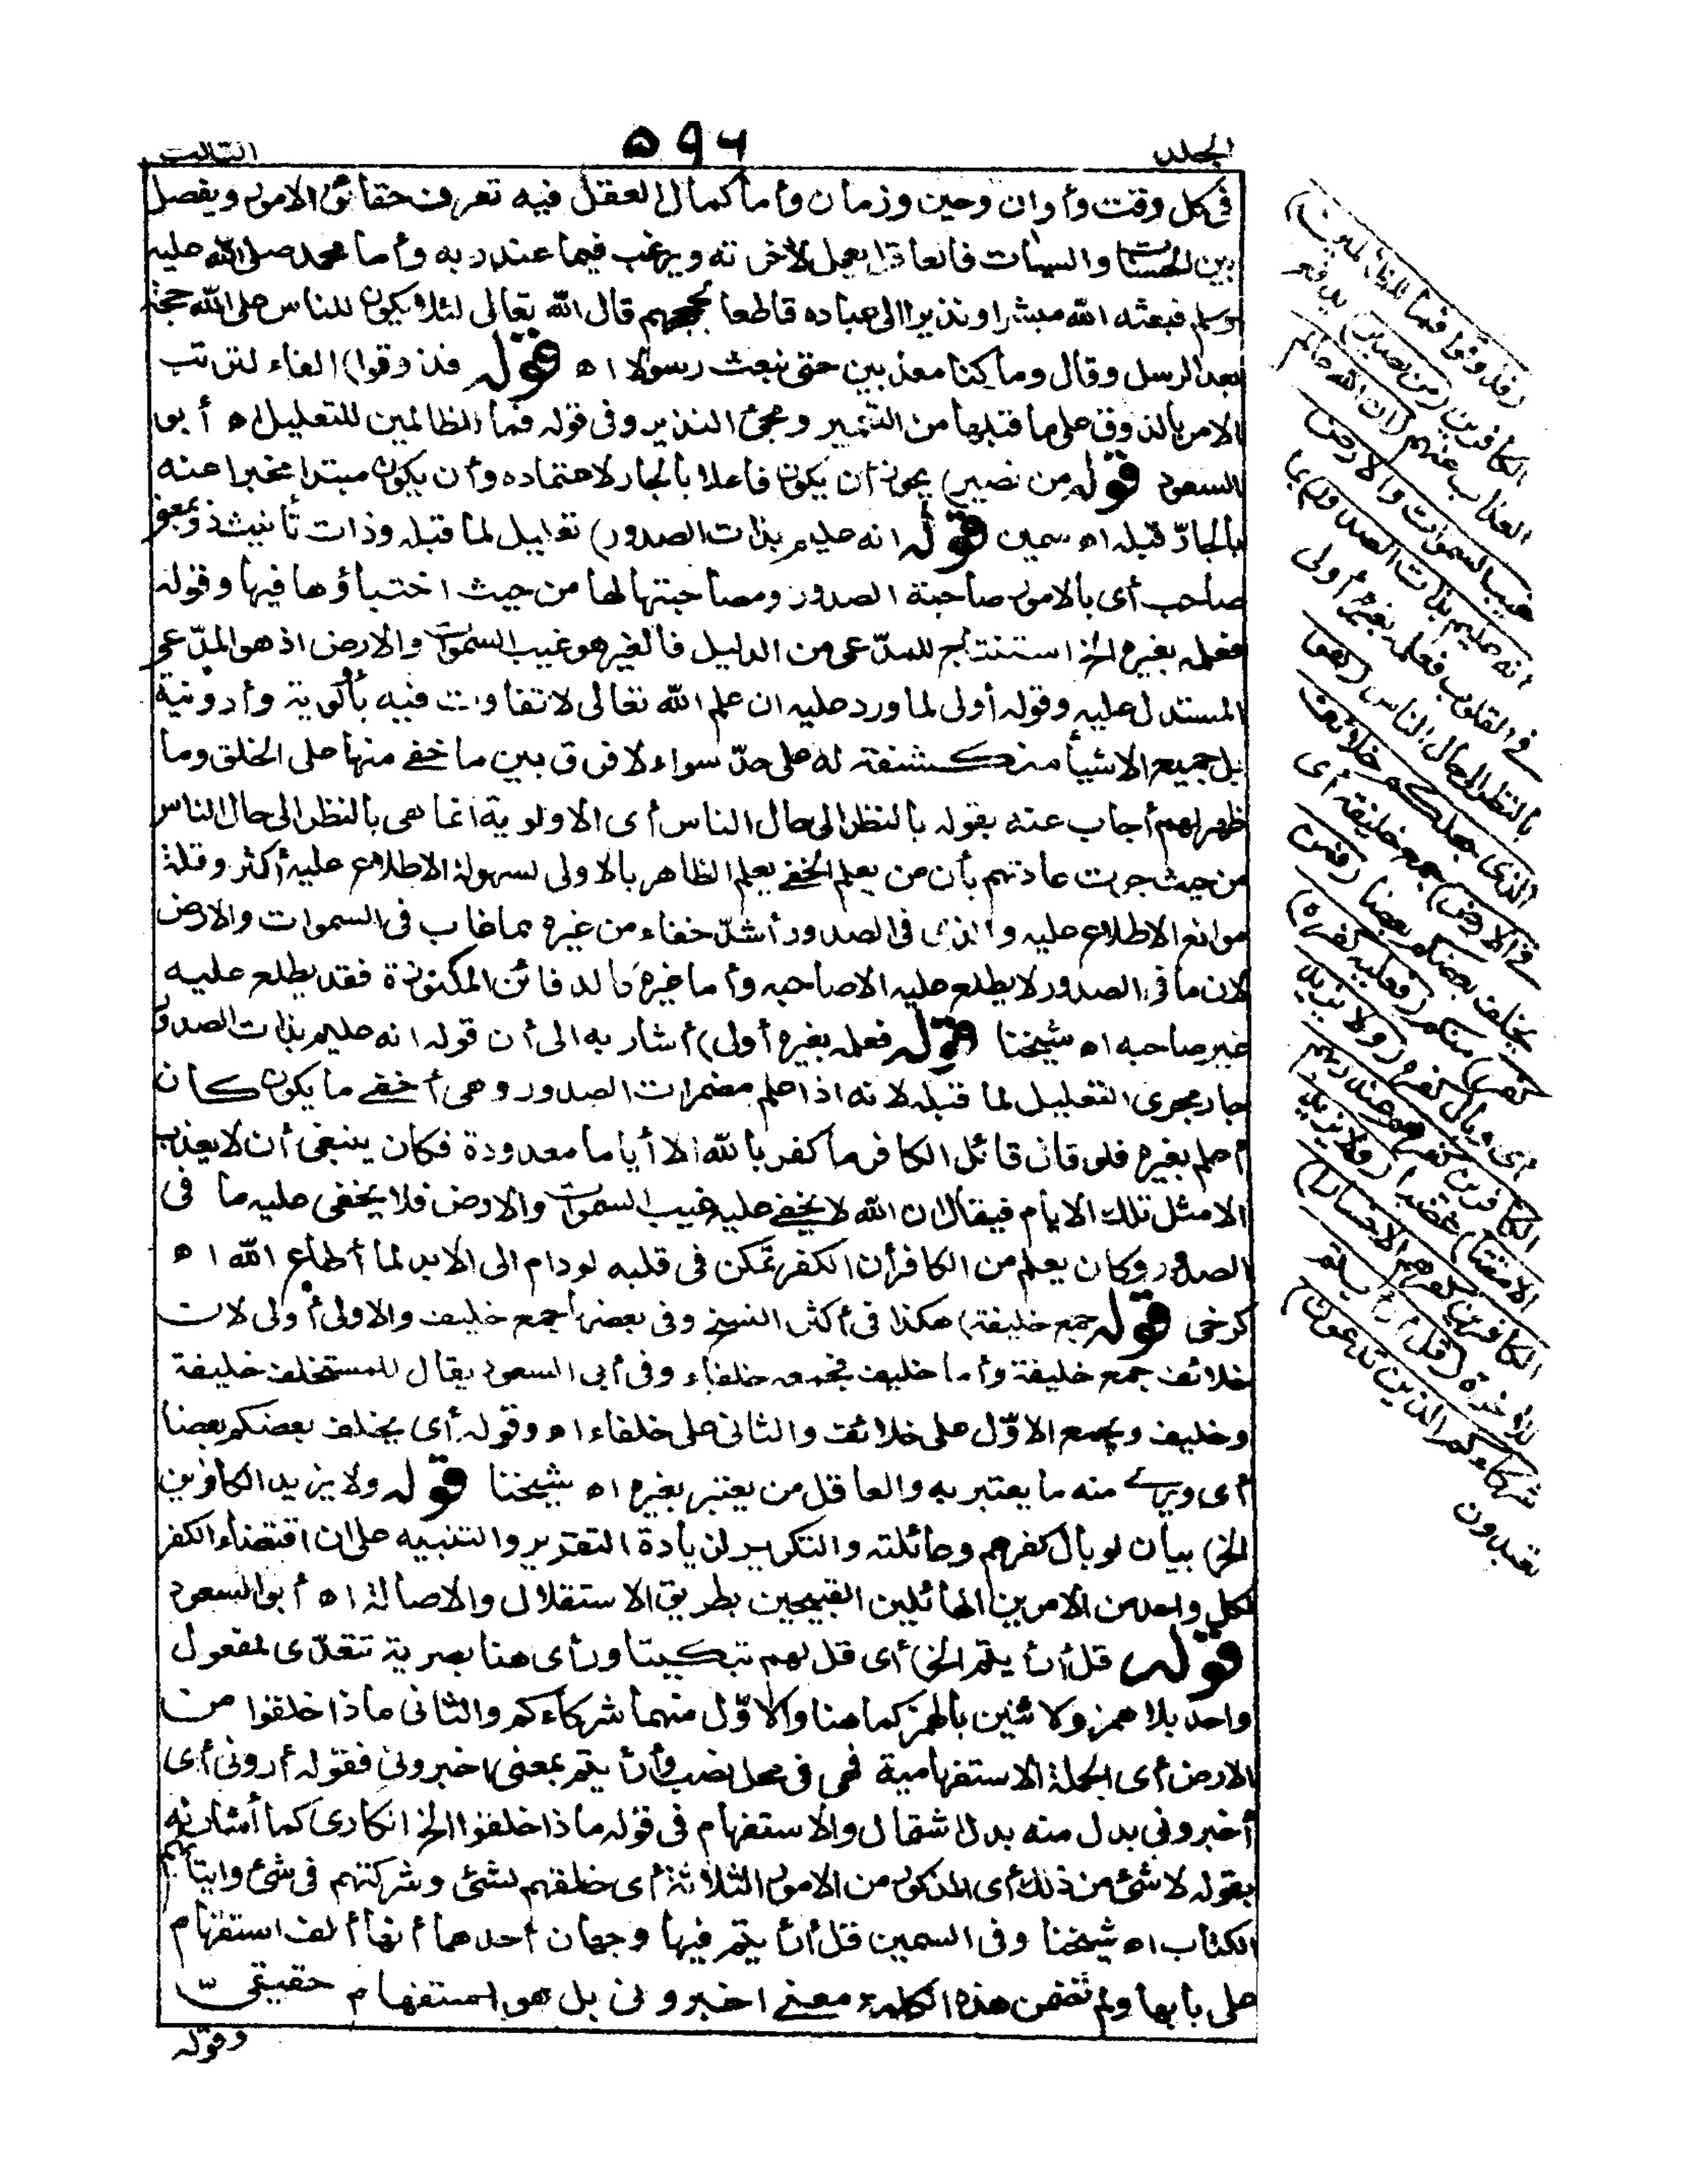 الجلد
٥٩٦
الثالث
فى كل وقت وأوان وحين وزمان وأما كمال العقل فبه تعرف حقائق الامور ويفصل
بين الحسنات والسيات فالعاقل يعمل لآخرته ويرغب فيما عند ربه وأما محمد صلى الله عليه
وسلم فبعثه الله مبشرا ونذيرا الى عباده قاطعا لحججهم قال الله تعالى لئلا يكون للناس على الله حجة
بعد الرسل وقال وما كنا معذبين حتى نبعث رسولا اه قوله فذوقوا) الفاء لترتب
الامر بالذوق على ما قبلها من التعمير ومجئ النذير وفى قوله فما للظالمين للتعليل اه أبو
السعود قوله من نصير) يجوز أن يكون فاعلا بالجار لاعتماده وأن يكون مبتدا مخبرا عنه
بالجارّ قبله اه سمين قوله انه عليم بذات الصدور) تعليل لما قبله وذات تأنيث ذو بمعنى
صاحب أى بالامور صاحبة الصدور ومصاحبتها لها من حيث اختباؤها فيها وقوله
فعلمه بغيره الخ استنتاج للمدّعى من الدليل فالغير هو غيب السموات والارض اذ هو المدّعى
المستدل عليه وقوله أولى لما ورد عليه ان علم الله تعالى لا تفاوت فيه بأولوية وأدونية
بل جميع الاشيأ منكشفة له على حدّ سواء لا فرق بين ما خفى منها على الخلق وما
ظهر لهم أجاب عنه بقوله بالنظر الى حال الناس أى الاولوية انما هى بالنظر الى حال الناس
من حيث جرت عادتهم بأن من يعلم الخفى يعلم الظاهر بالاولى لسهولة الاطلاع عليه أكثر وقلة
موانع الاطلاع عليه والذى فى الصدور أشدّ خفاء من غيره مما غاب فى السموات والارض
لان ما فى الصدور لا يطلع عليه الا صاحبه وأما غيره كالدفائن المكنوزة فقد يطلع عليه
غير صاحبه اه شيخنا قوله فعلمه بغيره أولى) أشار به الى أن قوله انه عليم بذات الصدور
جار مجرى التعليل لما قبله لانه اذا علم مضمرات الصدور وهى أخفى ما يكون كان
أعلم بغيره فلو قال قائل الكافر ما كفر بالله الا أياما معدودة فكان ينبغى أن لا يعذب
الا مثل تلك الايام فيقال ان الله لا يخفى عليه غيب السموات والارض فلا يخفى عليه ما فى
الصدور وكان يعلم من الكافر أن الكفر تمكن فى قلبه لو دام الى الابد لما أطاع الله اه
كرخى قوله جمع خليفة) هكذا فى أكثر النسخ وفى بعضها جمع خليف والاولى أولى لان
خلائف جمع خليفة وأما خليف فجمعه خلفاء وفى أبى السعود يقال للمستخلف خليفة
وخليف ويجمع الاوّل على خلائف والثانى على خلفاء اه وقوله أى يخلف بعضكم بعضا
أى ويرى منه ما يعتبر به والعاقل من يعتبر بغيره اه شيخنا قوله ولا يزيد الكافرين
الخ) بيان لوبال كفرهم وغائلته والتكرير لزيادة التقرير والتنبيه على ان اقتضاء الكفر
لكل واحد من الامرين الهائلين القبيحين بطريق الاستقلال والاصالة اه أبو السعود
قوله قل أرأيتم الخ) أى قل لهم تبكيتا ورأى هنا بصرية تتعدّى لمفعول
واحد بلا همز ولاثنين بالهمز كما هنا والاوّل منهما شركاءكم والثانى ماذا خلقوا من
الارض أى الجملة الاستفهامية فهى فى محل نصب وأرأيتم بمعنى اخبرونى فقوله أرونى أى
أخبرونى بدل منه بدل اشتمال والاستفهام فى قوله ماذا خلقوا الخ انكارى كما أشار له
بقوله لا شئ من ذلك أى المذكور من الامور الثلاثة أى خلقهم لشئ وشركتهم فى شئ وايتائهم
الكتاب اه شيخنا وفى السمين قل أرأيتم فيها وجهان أحدهما أنها ألف استفهام
على بابها ولم تتضمن هذه الكلمة معنى اخبرونى بل هو استفهام حقيقىّ
وقوله
(فذوقوا فما للظالمين)
الكافرين (من نصير) يدفع
العذاب عنهم (ان الله عالم
غيب السموات والارض
انه عليم بذات الصدور)
فى القلوب فعلمه بغيره أولى
بالنظر الى حال الناس (هو
الذى جعلكم خلائف
فى الارض) جمع خليفة أى
يخلف بعضكم بعضا (فمن
كفر) منكم (فعليه كفره)
أى وبال كفره (ولا يزيد
الكافرين كفرهم عند ربهم
الا مقتا) غضبا (ولا يزيد
الكافرين كفرهم الا خسارا)
للآخرة (قل أرأيتم
شركاءكم الذين تدعون)
تعبدون